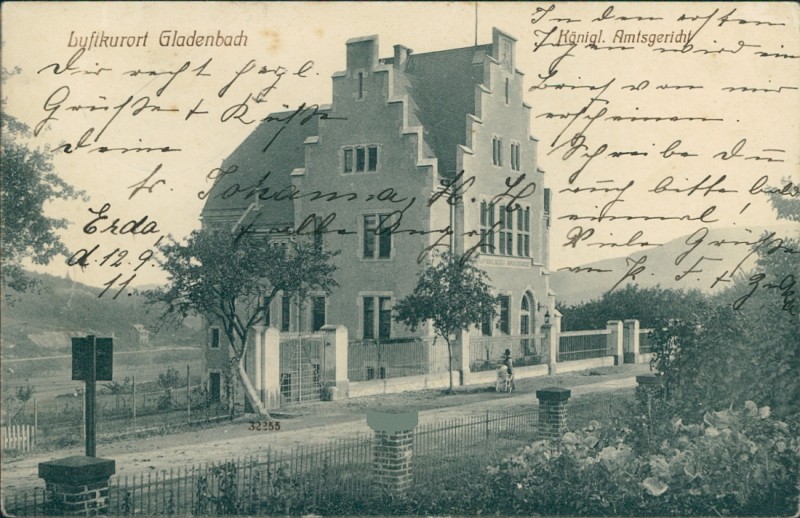 Luftkurort Gladenbach
Königl. Amtsgericht
Dir recht herzl.
Grüsse + Küsse
deine
Fr. Johanna H. H
+ alle Angeh
Erda,
d. 12.9.
11
In den ersten
Tagen wird ein
Brief von mir
erscheinen.
Schreibe Du
auch bitte bald
einmal!
Viele Grüsse
32255